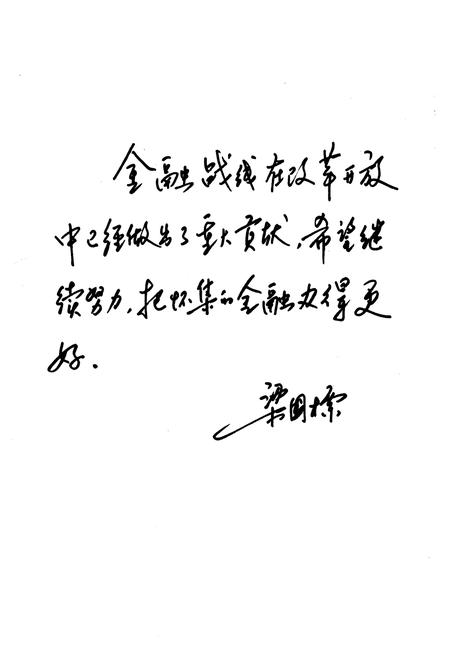 金融战线在改革开放
中已经做出了重大贡献，希望继
续努力，把怀集的金融办得更
好．
梁国标